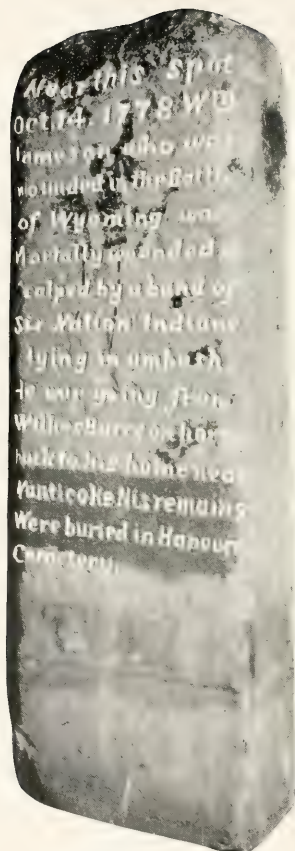 Near this Spot
Oct. 14, 1778 Wm
Jameson, who was
wounded in the Battle
of Wyoming was
Mortally wounded &
scalped by a band of
Six Nation Indians
lying in ambush
He was going from
Wilkes Barre on horse
back to his home near
Nanticoke His remains
Were buried in Hanover
Cemetery.